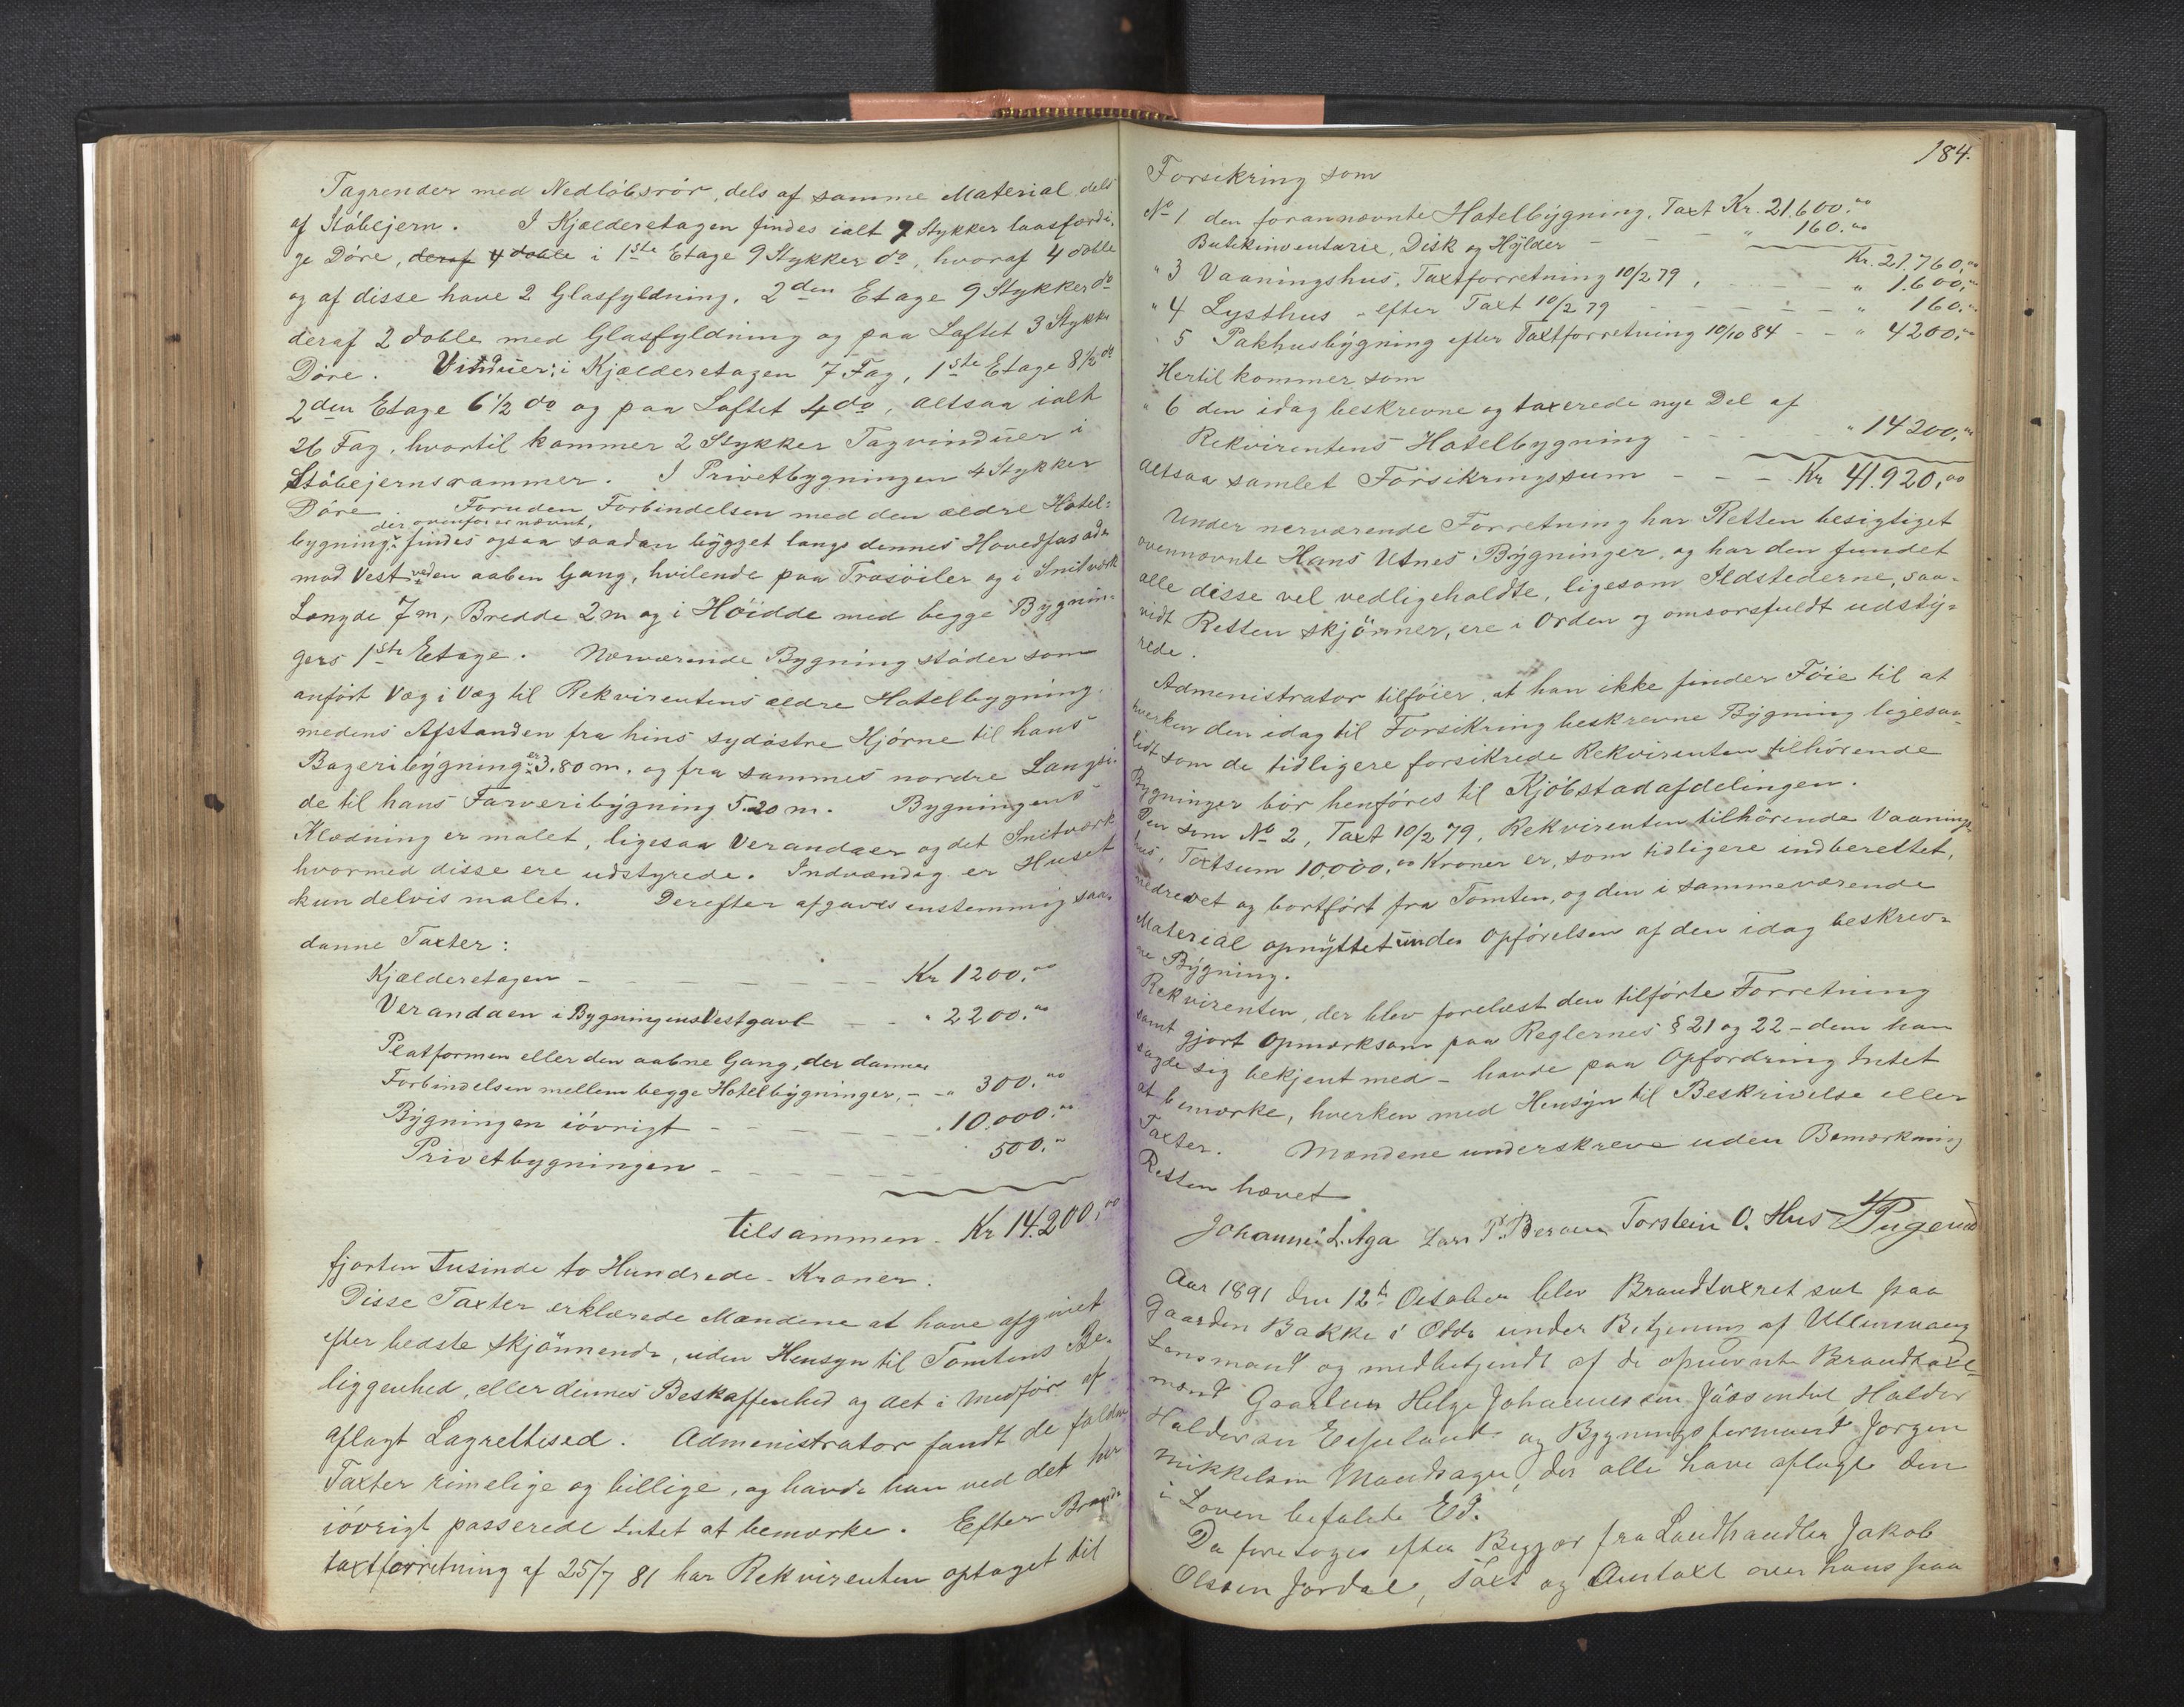 Tagrender med Nedløbsrör, dels af samme Material dels
af Stöbejern. I Kjælderetagen findes ialt 7 Stykker laasfærdi-
ge Döre, deraf 4 doble i 1ste Etage 9 Stykker do, hvoraf 4 doble
og af disse have 2 Glasfyldning. 2den Etage 9 Stykker do
deraf 2 doble med Glasfyldning og paa Loftet 3 Stykker
Döre. Vinduer: i Kjælderetagen 7 Fag, 1ste Etage 8 1/2 do
2den Etage 6 1/2 do og paa Loftet 4 do, altsaa ialt
26 Fag, hvortil kommer 2 Stykker Tagvinduer i
Stöbejernsrammer. I Privetbygningen 4 Stykker
Döre. Foruden Forbindelsen med den ældre Hotel-
der ovenfor er nævnt,
bygning findes ogsaa saadan bygget langs dennes Hovedfasade
mod Vest ved en aaben Gang, hvilende paa Træsöiler og i Snitværk
Længde 7 m, Bredde 2 m og i Höidde med begge Bygnin-
gers 1ste Etage. Nærværende Bygning stöder som
anfört Væg i Væg til Rekvirentens ældre Hotelbygning,
medens Afstanden fra hins sydöstre Hjörne til hans
Bageribygning er 3.80 m, og fra sammes nordre Langsi-
de til hans Farveribygning 5.20 m. Bygningens
Klædning er malet, ligesaa Verandaer og det Snitværk
hvormed disse ere udstyrede. Indvændig er Huset
kun delvis malet. Derefter afgaves enstemmig saa-
danne Taxter:
Kjælderetagen - - - Kr 1200.00
Verandaen i Bygningens Vestgavl - - " 2200.00
Platformen eller den aabne Gang, der danner
Forbindelsen mellem begge Hotelbygninger, - - " 300.00
Bygningen iövrigt - - - " 10.000.00
Privetbygningen - - - " 500.00
tilsammen - Kr 14.200,00
fjorten Tusinde to Hundrede - Kroner.
Disse Taxter erklærede Mændene at have afgivet
efter bedste Skjönnende, uden Hensyn til Tomtens Be-
liggenhed, eller dennes Beskaffenhed og det i Medför af
aflagt Lagrettesed. Admenistrator fandt de faldne
Taxter rimelige og billige, og havde han ved det her
iövrigt passerede Intet at bemærke. Efter Brand-
taxtforretning af 25/7 81 har Rekvirenten optaget til
184.
Forsikring som
No 1 den forannævnte Hotelbygning. Taxt Kr. 21.600.00
Butikinventarie, Disk og Hylder - - - " 160.00
Kr. 21.760,00
" 3 Vaaningshus, Taxtforretning 10/2 79, - - " 1.600,00
" 4 Lysthus - efter Taxt 10/2 79 - - - " 160,00
" 5 Pakhusbygning efter Taxtforretning 10/10 84 - - " 4200,00
Hertil kommer som
" 6 den idag beskrevne og taxerede nye Del af
Rekvirentens Hotelbygning - - - " 14200,00
altsaa samlet Forsikringssum - - - Kr 41.920,00
Under nærværende Forretning har Retten besigtiget
ovennævnte Hans Utnes Bygninger, og har den fundet
alle disse vel vedligeholdte, ligesom Ildstederne, saa-
vidt Retten skjönner, ere i Orden og omsorsfuldt udsty-
rede.
Admenistrator tilföier, at han ikke finder Föie til at
hverken den idag til Forsikring beskrevne Bygning ligesaa-
lidt som de tidligere forsikrede Rekvirenten tilhörende
Bygninger bör henföres til Kjöbstadafdelingen.
Den som No 2, Taxt 10/2 79, Rekvirenten tilhörende Vaanings-
hus, Taxtsum 10.000.00 Kroner er, som tidligere indberettet,
nedrevet og bortfört fra Tomten, og den i samme værende
Material opnyttet under Opförelsen af den idag beskrev-
ne Bygning.
Rekvirenten, der blev forelæst den tilförte Forretning
samt gjort opmærksom paa Reglernes § 21 og 22 - dem han
sagde sig bekjent med - havde paa Opfordring Intet
at bemærke, hverken med Hensyn til Beskrivelse eller
Taxter. Mændene underskreve uden Bemærkning
Retten hævet
Johannes L. Aga Lars P. Torstein O. Hus
Aar 1891 den 12te October blev Brandtaxret sat paa
Gaarden Bakke i Odda under Betjening af Ullensvang
Lensmand og medbetjendt af de opnevnte Brandtaxt-
mænd Gaardm Helge Johannessen Jösendal, Haldor
Haldorsen Espeland og Bygningsformand Jørgen
Mikkelsen der alle have aflagt den
i Loven befalede Ed.
Da foretoges efter Begjær fra Landhandler Jakob
Olsen Jordal, Taxt og Omtaxt over hans paa